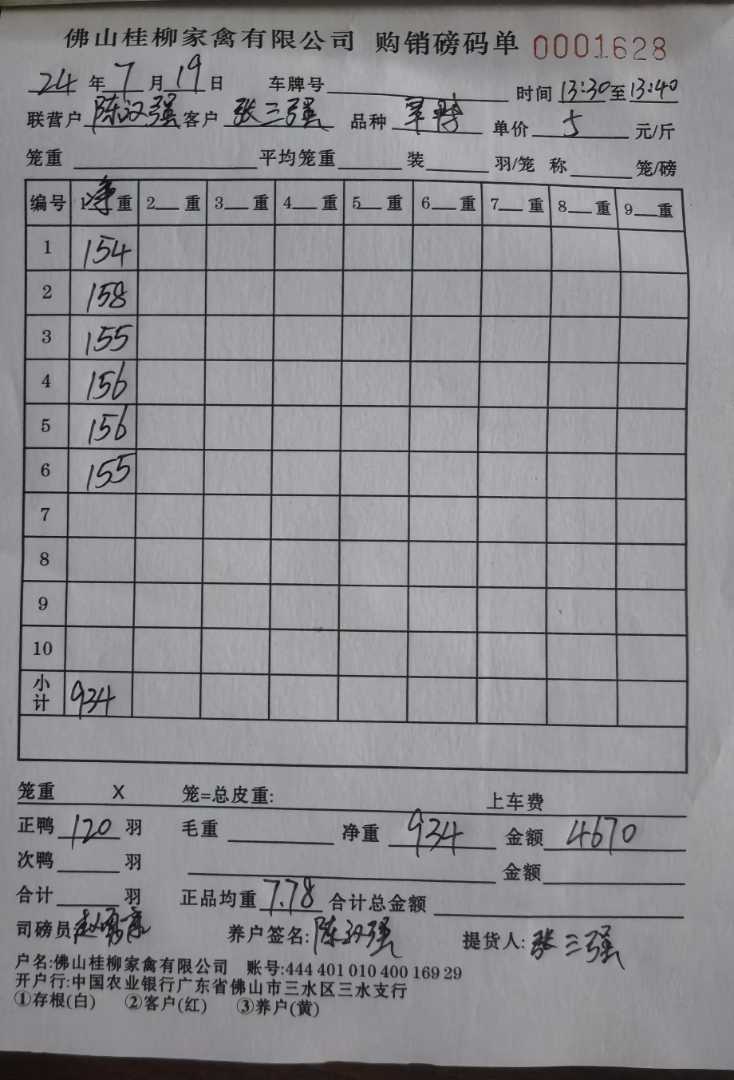 佛山桂柳家禽有限公司 购销磅码单 0001628
24年7月19日 车牌号 时间 13:30至13:40
联营户 陈汉强 客户 张三强 品种 单价 5 元/斤
笼重 平均笼重 装 羽/笼 称 笼/磅
编号 1净重 2 重 3 重 4 重 5 重 6 重 7 重 8 重 9 重
1 154
2 158
3 155
4 156
5 156
6 155
7
8
9
10
小计 934
笼重 X 笼=总皮重: 上车费
正鸭 120 羽 毛重 净重 934 金额 4670
次鸭 羽 金额
合计 羽 正品均重 7.78 合计总金额
司磅员 养户签名: 陈汉强 提货人: 张三强
户名:佛山桂柳家禽有限公司 账号:444 401 010 400 169 29
开户行:中国农业银行广东省佛山市三水区三水支行
①存根(白) ②客户(红) ③养户(黄)